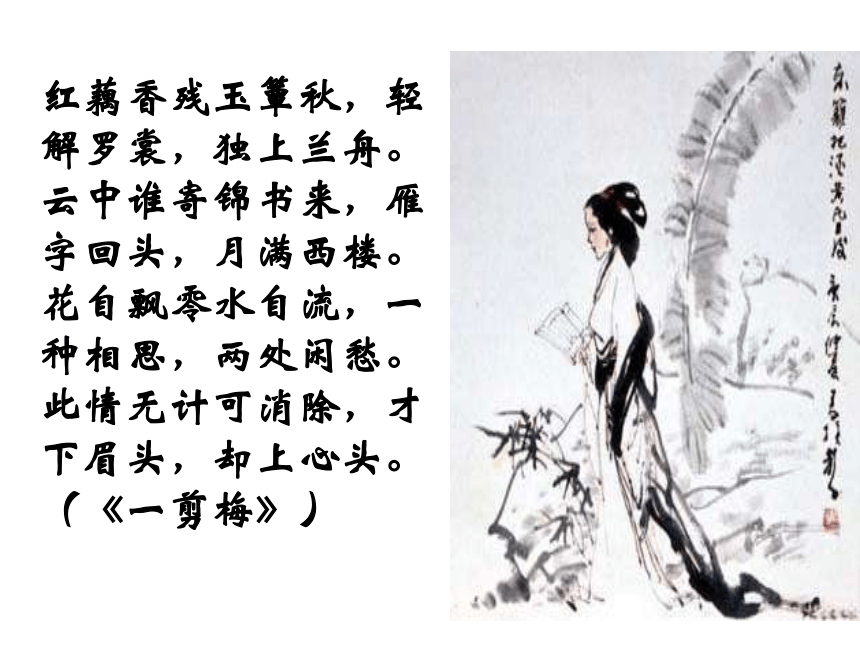 红藕香残玉簟秋，轻
解罗裳，独上兰舟。
云中谁寄锦书来，雁
字回头，月满西楼。
花自飘零水自流，一
种相思，两处闲愁。
此情无计可消除，才
下眉头，却上心头。
（《一剪梅》）
东篱把酒黄昏后